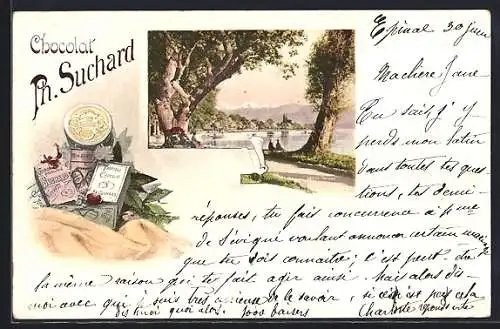 Chocolat
Ph. Suchard
Epinal 30 juin
Ma chère Jane
Tu sais j'y
perds mon latin
dans toutes tes ques-
tions, tes demi-
réponses, tu fais concurrence à Mme
de Sévigné voulant annoncer certain mariage
que tu dois connaître; c'est peut. du
la même raison qui te fait agir ainsi. Mais alors dis
moi avec qui je suis très de le savoir, si c'est pas cela
dis moi quoi alors. 1000 baisers
Charlotte